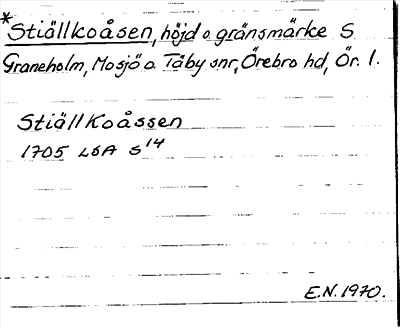 *Stiällkoåsen, höjd o gränsmärke S
Graneholm, Mosjö o Täby snr, Örebro hd, Ör. l.
Stiällkoåssen
1705 LSA S 14
E.N. 1970.